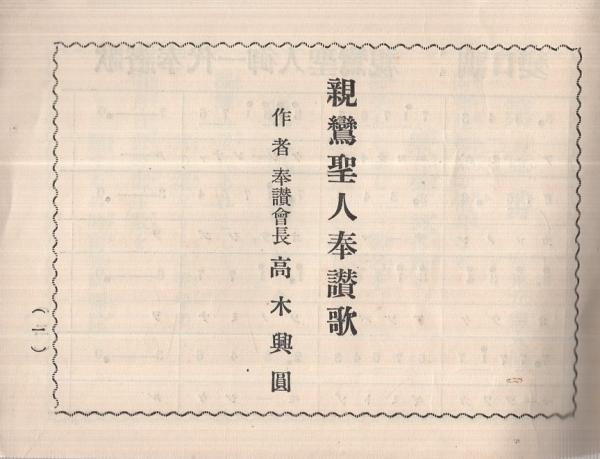 親鸞聖人奉讃歌
作者 奉讃會長 高木興圓
（一）